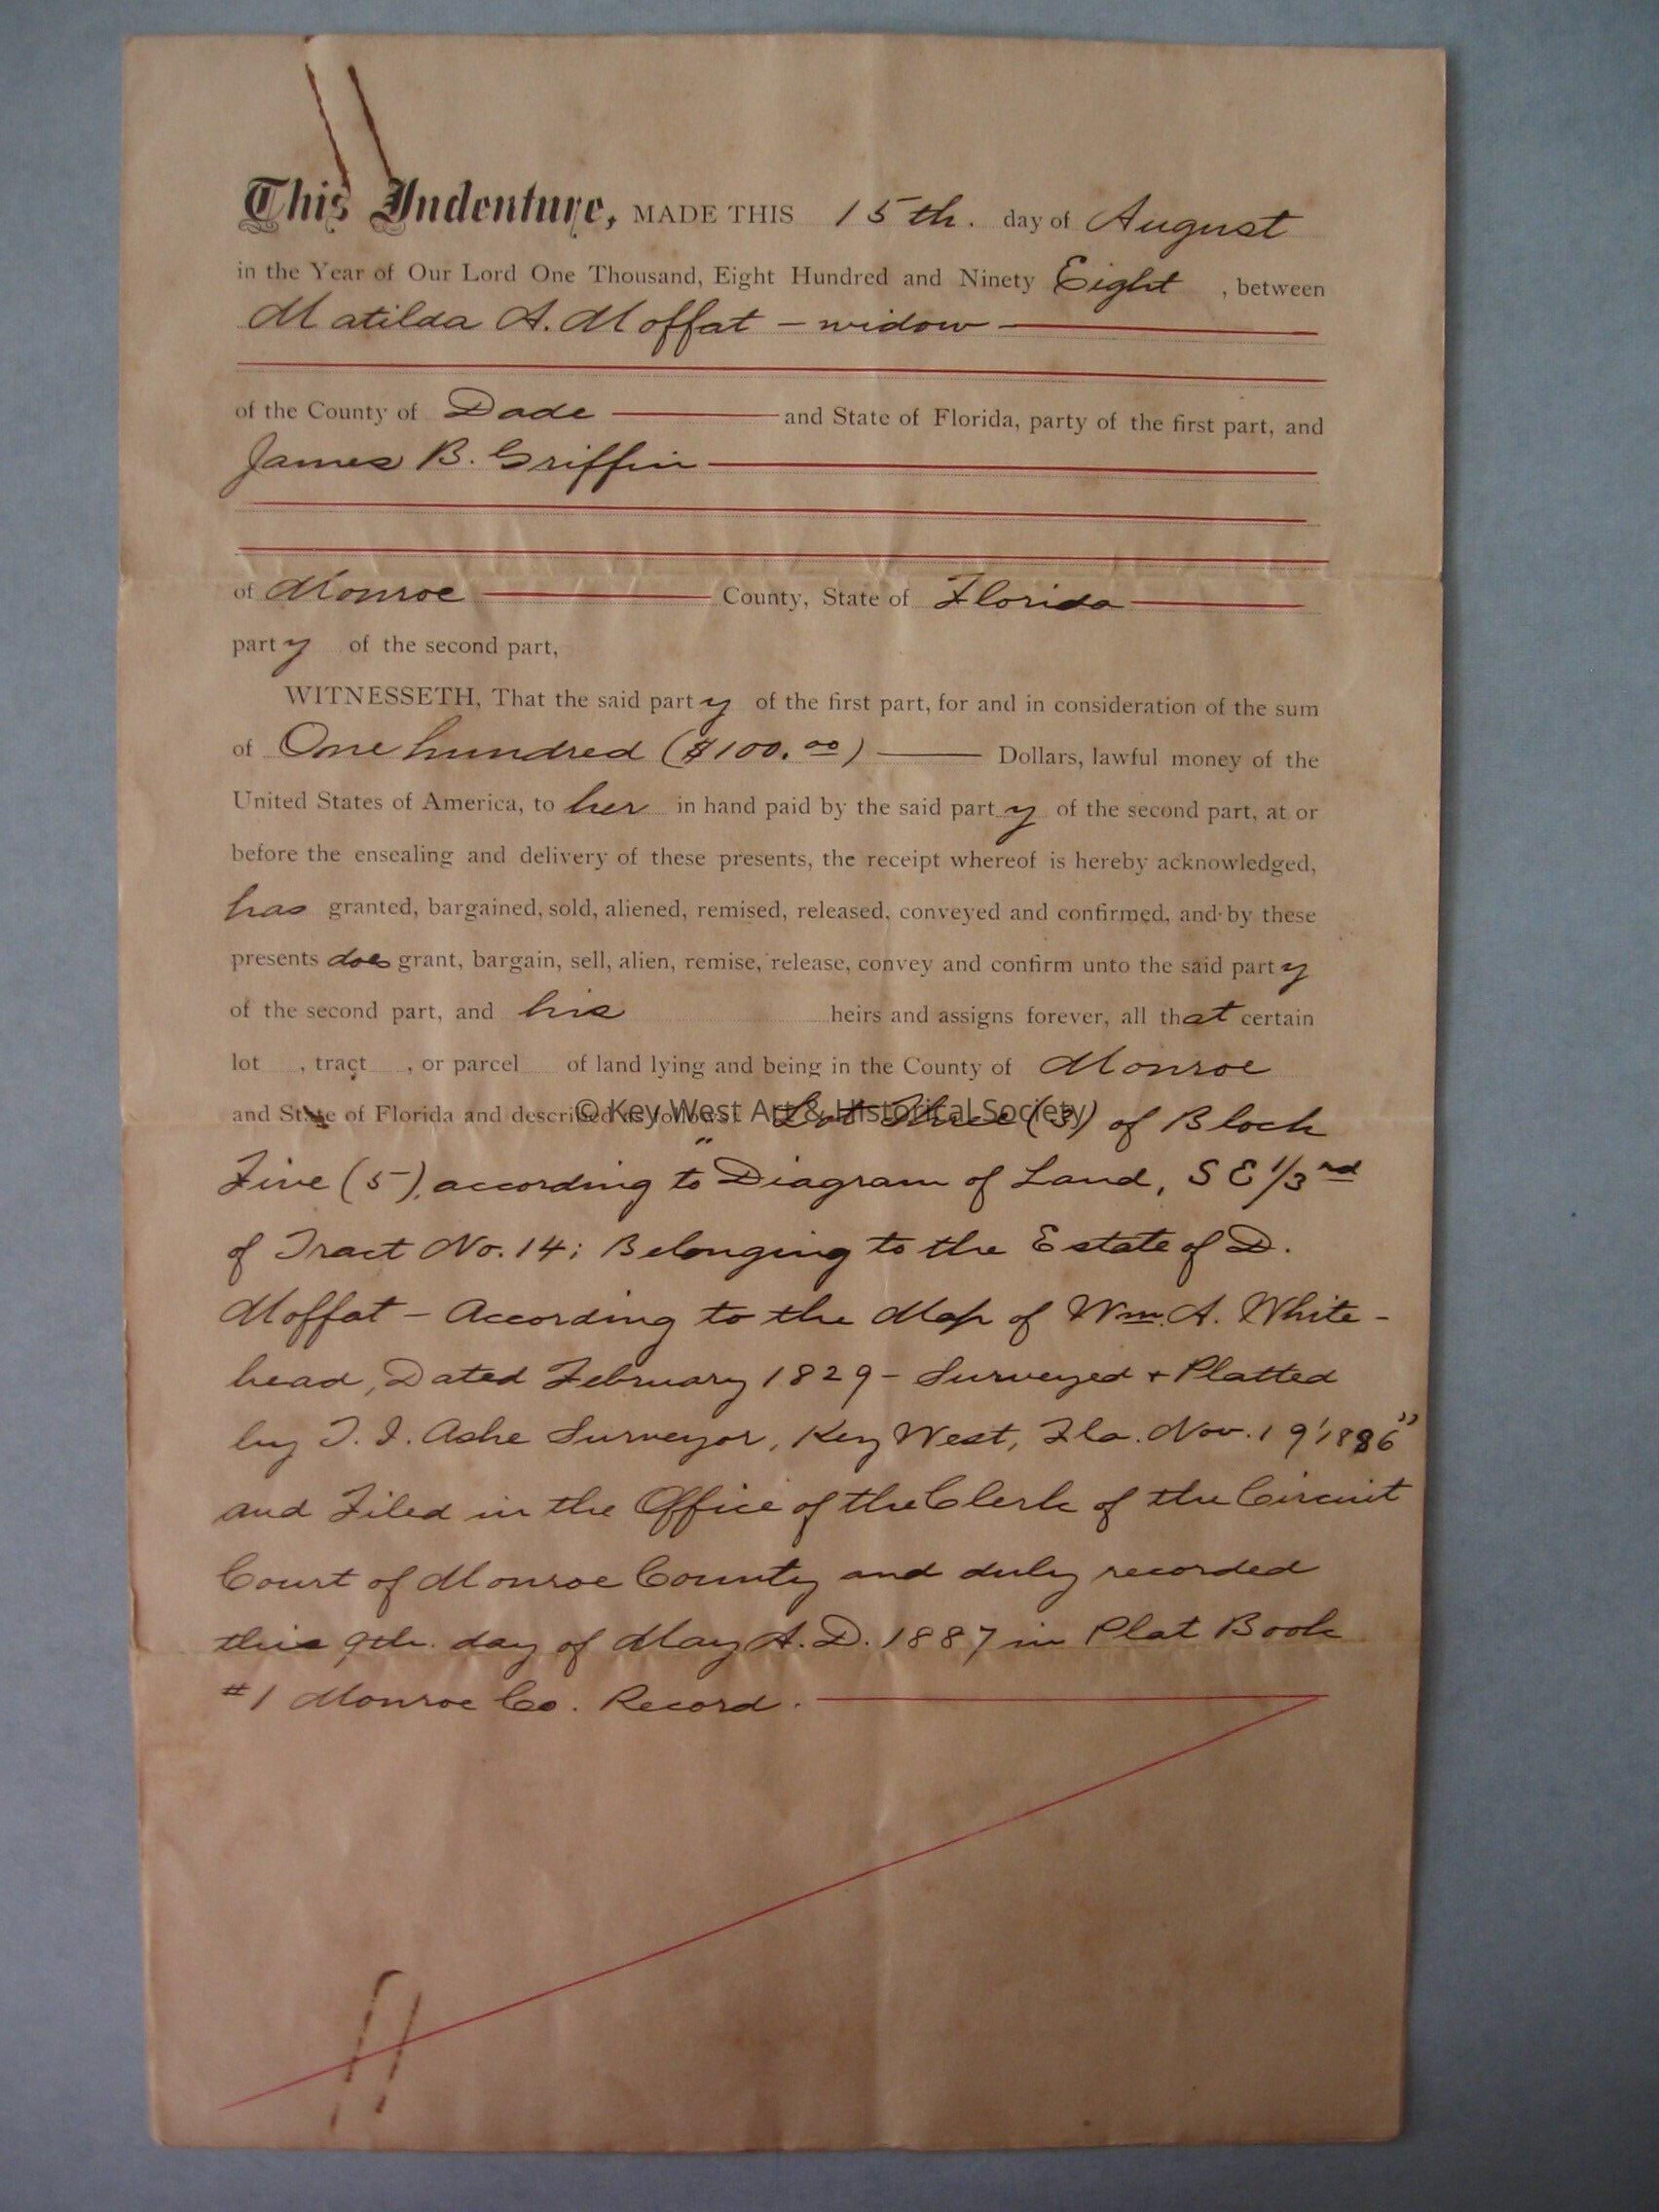 This Indenture, MADE THIS 15th. day of August
in the Year of Our Lord One Thousand, Eight Hundred and Ninety Eight, between
Matilda A. Moffat - widow
of the County of Dade and State of Florida, party of the first part, and
James B. Griffin
of Monroe County, State of Florida
party of the second part,
WITNESSETH, That the said party of the first part, for and in consideration of the sum
of One hundred ($100.00) Dollars, lawful money of the
United States of America, to her in hand paid by the said party of the second part, at or
before the ensealing and delivery of these presents, the receipt whereof is hereby acknowledged,
has granted, bargained, sold, aliened, remised, released, conveyed and confirmed, and by these
presents does grant, bargain, sell, alien, remise, release, convey and confirm unto the said party
of the second part, and his heirs and assigns forever, all that certain
lot , tract , or parcel of land lying and being in the County of Monroe
and State of Florida and described as follows: Lot Three (3) of Block
© Key West Art & Historical Society
Five (5), according to "Diagram of Land, SE 1/3rd
of Tract No. 14; Belonging to the Estate of D.
Moffat - According to the Map of Wm. A. White-
head, Dated February 1829 - Surveyed + Platted
by T. J. Ashe Surveyor, Key West, Fla. Nov. 19' 1886"
and Filed in the Office of the Clerk of the Circuit
Court of Monroe County and duly recorded
this 9th. day of May A.D. 1887 in Plat Book
#1 Monroe Co. Record.